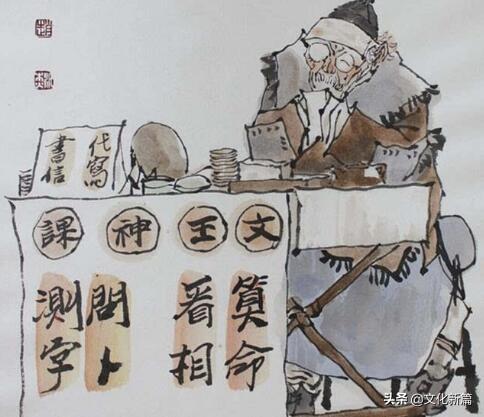 代寫
書信
文王神課
算命
看相
問卜
測字
头条 @文化新篇